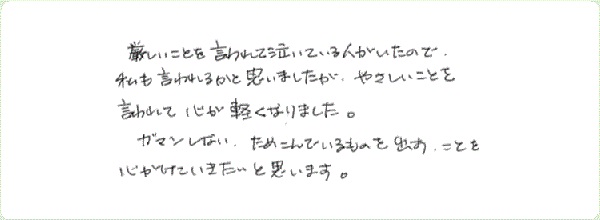 厳しいことを言われて泣いている人がいたので、
私も言われるかと思いましたが、やさしいことを
言われて心が軽くなりました。
ガマンしない、ためこんでいるものを出す、ことを
心がけていきたいと思います。